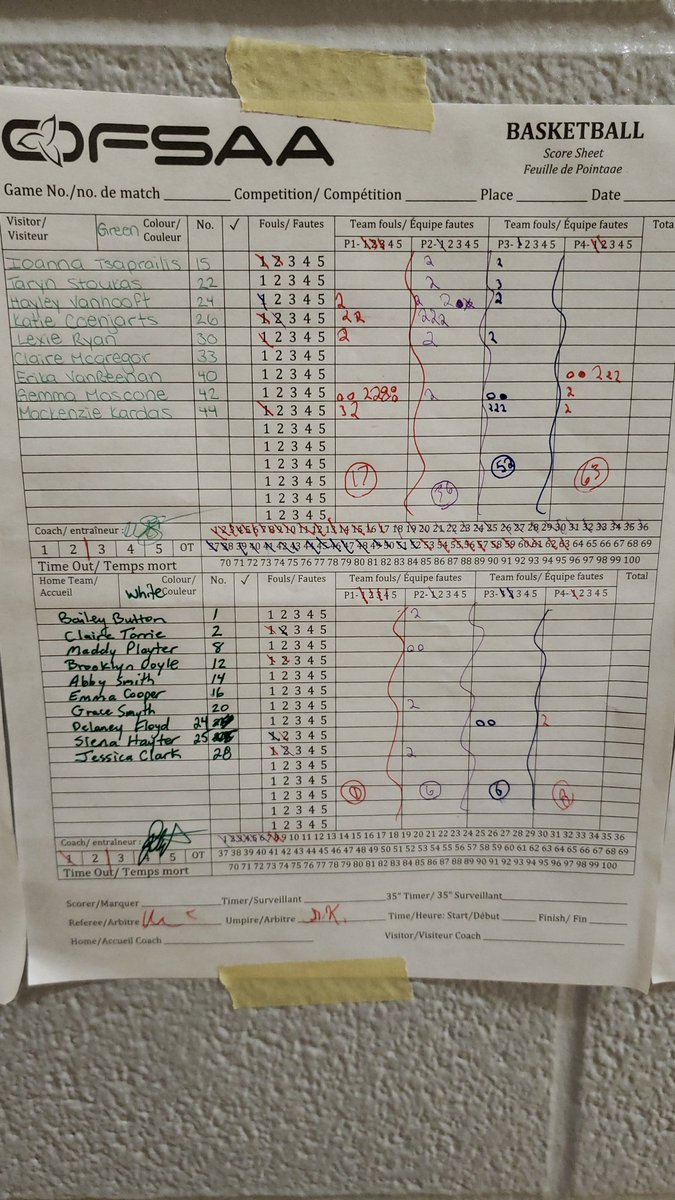 OFSAA
BASKETBALL
Score Sheet
Feuille de Pointage
Game No./no. de match Competition/ Compétition Place Date
Visitor/ Visiteur Green Colour/ Couleur No. ✓ Fouls/ Fautes Team fouls/ Équipe fautes Team fouls/ Équipe fautes Tota
P1- 1 2 3 4 5 P2- 1 2 3 4 5 P3- 1 2 3 4 5 P4- 1 2 3 4 5
Ioanna Tsaprailis 15 1 2 3 4 5 2 2
Taryn Stoukas 22 1 2 3 4 5 2 3
Hayley Vanhooft 24 1 2 3 4 5 2 2 2 2
Katie Coenjarts 26 1 2 3 4 5 22 222
Lexie Ryan 30 1 2 3 4 5 2 2 2
Claire McGregor 33 1 2 3 4 5
Erika VanBeenan 40 1 2 3 4 5 222
Gemma Moscone 42 1 2 3 4 5 2 2
Mackenzie Kardas 44 1 2 3 4 5 32 222 2
1 2 3 4 5
1 2 3 4 5
1 2 3 4 5
1 2 3 4 5
1 2 3 4 5
1 2 3 4 5
17 36 52 63
Coach/ entraîneur : 1 2 3 4 5 6 7 8 9 10 11 12 13 14 15 16 17 18 19 20 21 22 23 24 25 26 27 28 29 30 31 32 33 34 35 36
1 2 3 4 5 OT 37 38 39 40 41 42 43 44 45 46 47 48 49 50 51 52 53 54 55 56 57 58 59 60 61 62 63 64 65 66 67 68 69
Time Out/ Temps mort 70 71 72 73 74 75 76 77 78 79 80 81 82 83 84 85 86 87 88 89 90 91 92 93 94 95 96 97 98 99 100
Home Team/ Accueil White Colour/ Couleur No. ✓ Fouls/ Fautes Team fouls/ Équipe fautes Team fouls/ Équipe fautes Total
P1- 1 2 3 4 5 P2- 1 2 3 4 5 P3- 1 2 3 4 5 P4- 1 2 3 4 5
Bailey Button 1 1 2 3 4 5 2
Claire Torrie 2 1 2 3 4 5
Maddy Playter 8 1 2 3 4 5 00
Brooklyn Doyle 12 1 2 3 4 5
Abby Smith 14 1 2 3 4 5
Emma Cooper 16 1 2 3 4 5
Grace Smyth 20 1 2 3 4 5 2
Delaney Floyd 24 1 2 3 4 5 00 2
Siena Hayter 25 1 2 3 4 5
Jessica Clark 28 1 2 3 4 5 2
1 2 3 4 5
1 2 3 4 5
1 2 3 4 5
1 2 3 4 5
1 2 3 4 5
0 6 6 8
Coach/ entraîneur : 1 2 3 4 5 6 7 8 9 10 11 12 13 14 15 16 17 18 19 20 21 22 23 24 25 26 27 28 29 30 31 32 33 34 35 36
1 2 3 4 5 OT 37 38 39 40 41 42 43 44 45 46 47 48 49 50 51 52 53 54 55 56 57 58 59 60 61 62 63 64 65 66 67 68 69
Time Out/ Temps mort 70 71 72 73 74 75 76 77 78 79 80 81 82 83 84 85 86 87 88 89 90 91 92 93 94 95 96 97 98 99 100
Scorer/Marquer Timer/Surveillant 35" Timer/ 35" Surveillant
Referee/Arbitre Umpire/Arbitre D.K. Time/Heure: Start/Début Finish/ Fin
Home/Accueil Coach Visitor/Visiteur Coach